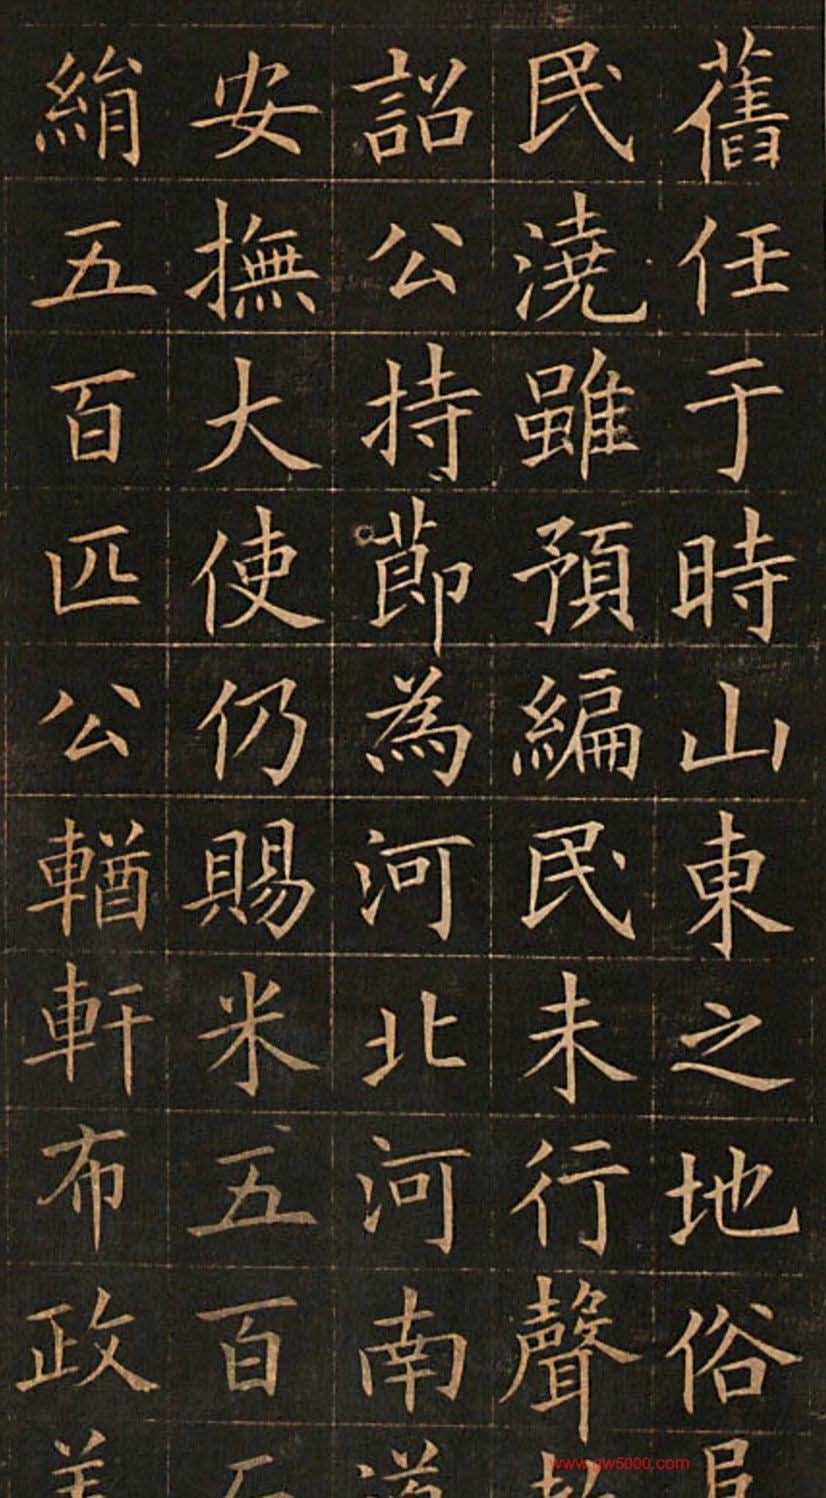 舊任于時山東之地俗
民澆雖預編民未行聲
詔公持莭為河北河南
安撫大使仍賜米五百
絹五百匹公輶軒布政
www.gw5000.com